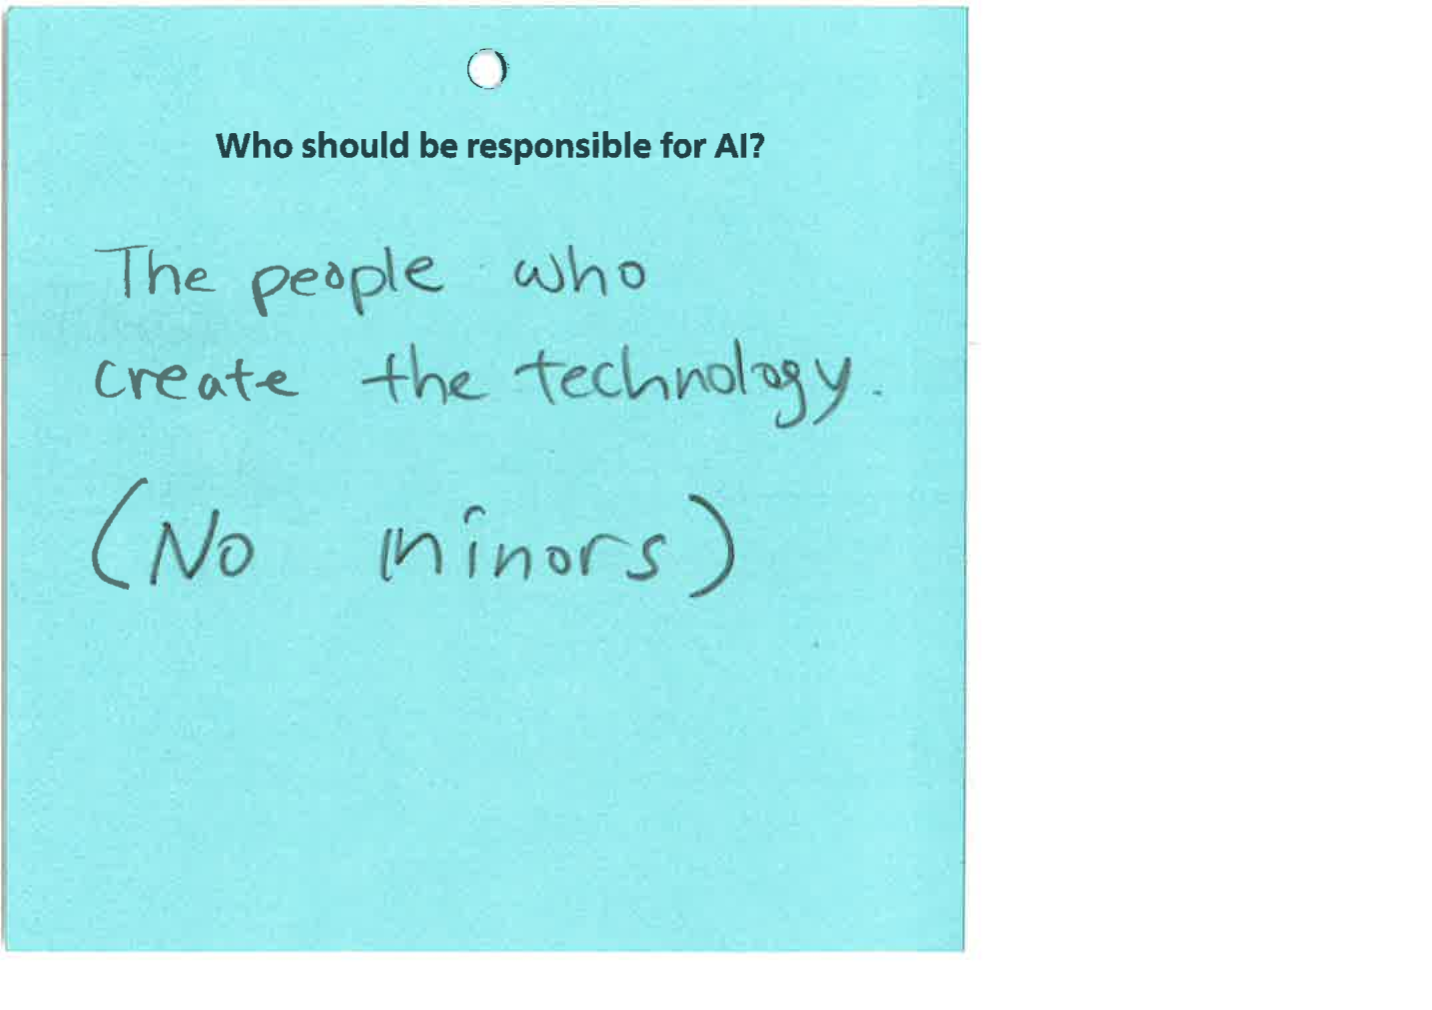 Who should be responsible for AI?
The people who
create the technology.
(No minors)